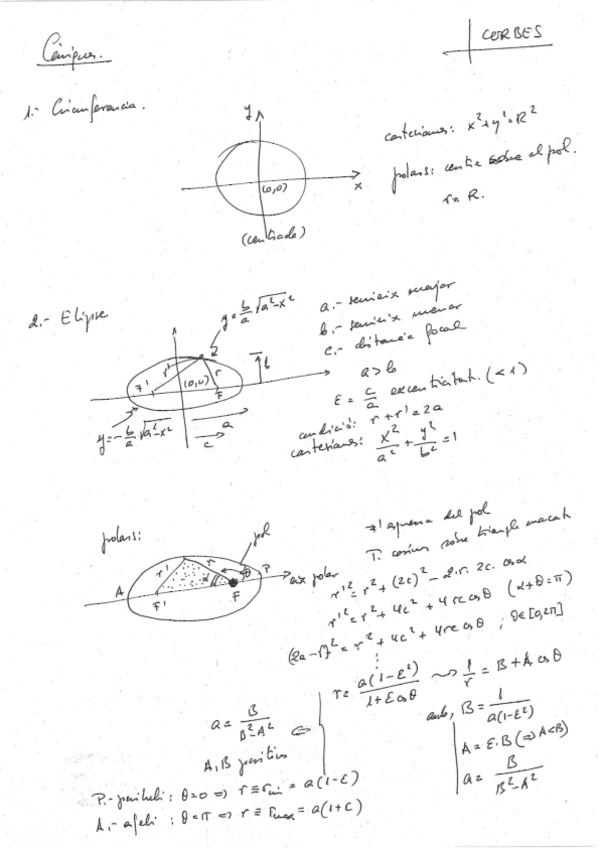 CORBES
Còniques.
1.- Circumferencia.
y
x
(0,0)
(centrada)
cartesianes: x²+y²=R²
polars: centre sobre el pol.
r=R.
2.- Elipse
y=b/a √(a²-x²)
r'
r
F'
(0,0)
F
b
a
c
y=-b/a √(a²-x²)
a.- semieix major
b.- semieix menor
c.- distància focal
a>b
ε = c/a excentricitat. (<1)
condició: r+r'=2a
cartesianes: x²/a² + y²/b² = 1
polars:
pol
r'
r
α
θ
P
A
F'
F
eix polar
F' esquerra del pol
T. cosinus sobre triangle marcat
r'² = r² + (2c)² - 2.r. 2c. cos α
r'² = r² + 4c² + 4rc cos θ (α+θ=π)
(2a-r)² = r² + 4c² + 4rc cos θ ; θ∈[0,2π]
⋮
r = a(1-ε²)/(1+ε cos θ) ⤳ 1/r = B + A cos θ
amb, B = 1/(a(1-ε²))
A = ε.B (⇒ A<B)
a = B/(B²-A²)
a = B/(B²-A²) ⇔
A, B positius
P.- periheli : θ=0 ⇒ r ≡ r min = a(1-ε)
A.- afeli : θ=π ⇒ r ≡ r max = a(1+ε)